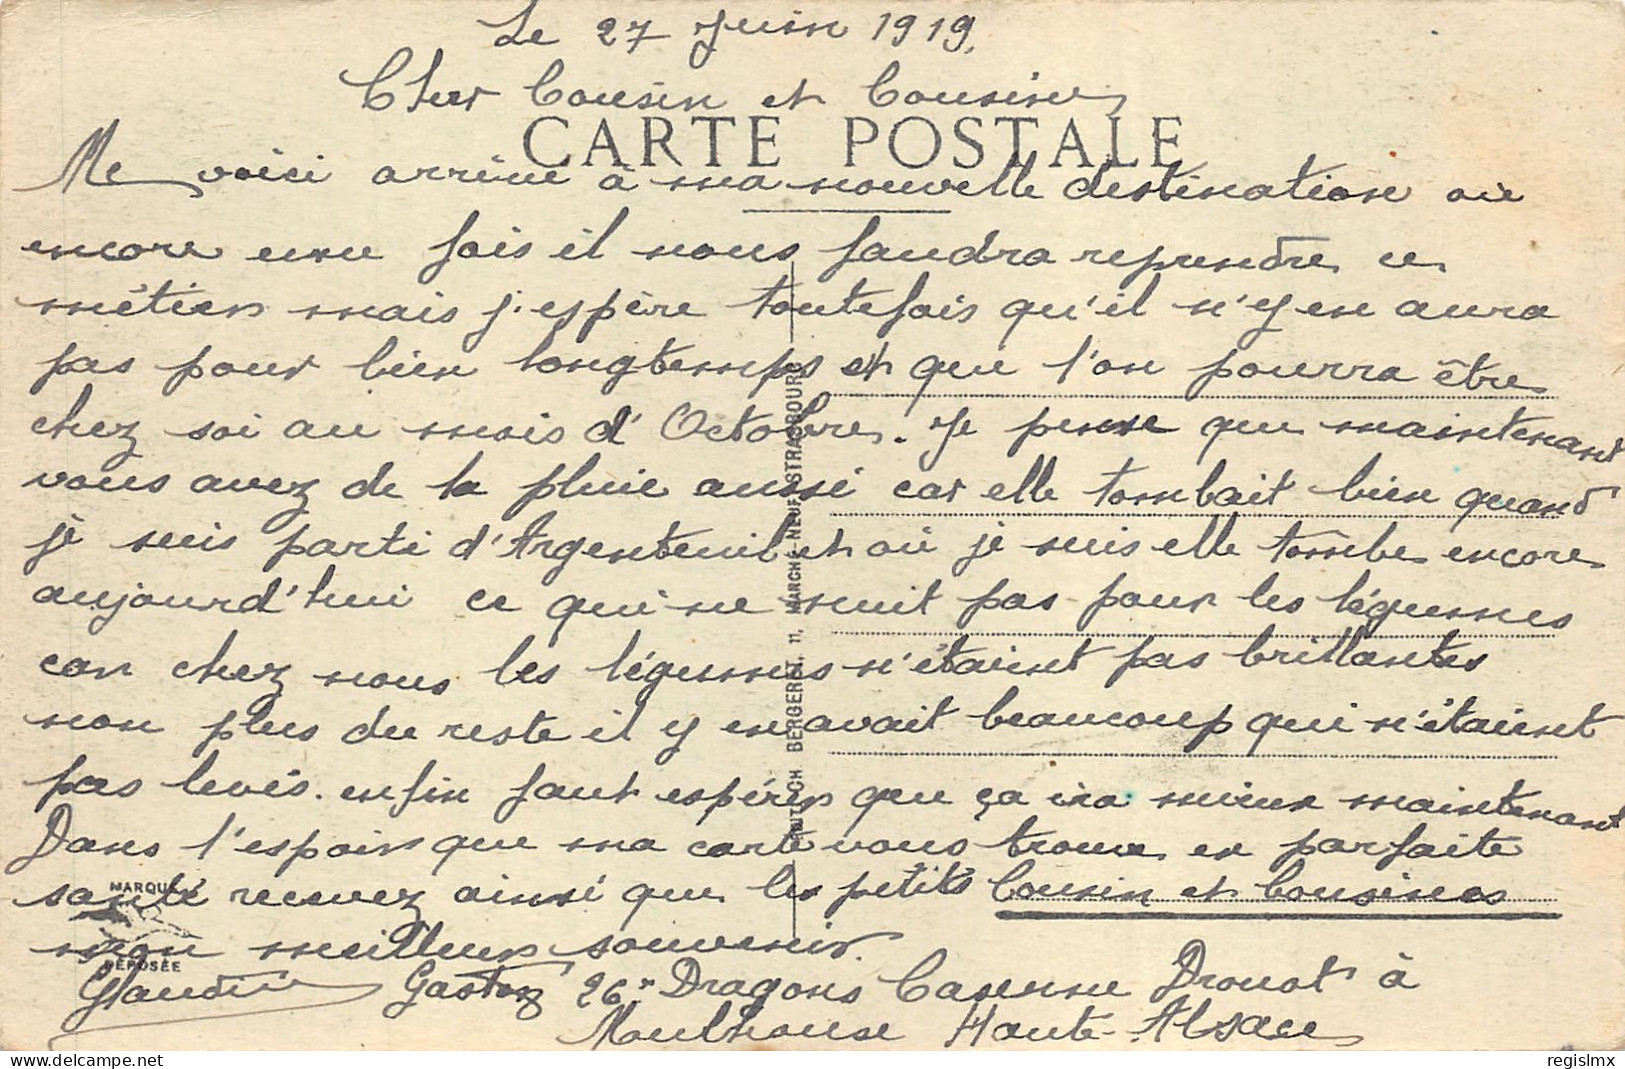 Le 27 Juin 1919.
Cher Cousin et Cousine
CARTE POSTALE
Me voici arrivé à ma nouvelle destination où
encore une fois il nous faudra reprendre ce
métier mais j'espère toutefois qu'il n'y en aura
pas pour bien longtemps et que l'on pourra être
chez soi au mois d'Octobre. Je pense que maintenant
vous avez de la pluie aussi car elle tombait bien quand
je suis parti d'Argenteuil et où je suis elle tombe encore
aujourd'hui ce qui ne nuit pas pour les légumes
car chez nous les légumes n'étaient pas brillantes
non plus du reste il y en avait beaucoup qui n'étaient
pas levés. enfin faut espérer que ça ira mieux maintenant
Dans l'espoir que ma carte vous trouve en parfaite
santé recevez ainsi que les petits Cousin et Cousines
mon meilleur souvenir.
Gaston 26e Dragons Caserne Drouot à
Moulhouse Haute-Alsace
MARQUE
DÉPOSÉE
BERGERET, 11, MARCHÉ-NEUF STRASBOURG
regislmx
delcampe.net